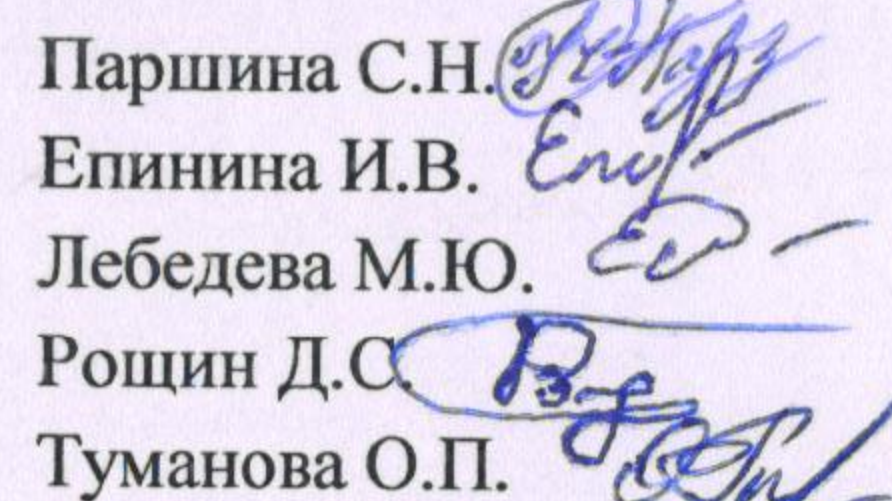 Паршина С.Н.
Епинина И.В.
Лебедева М.Ю.
Рощин Д.С.
Туманова О.П.